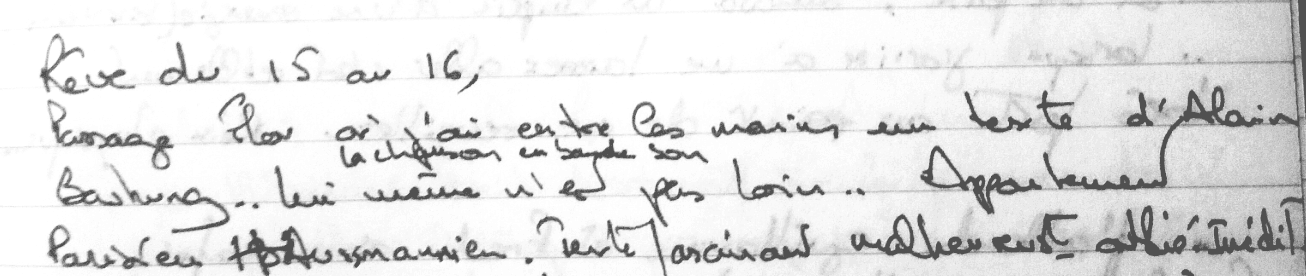 Rêve du 15 au 16,
Passage flou où j'ai entre les mains un texte d'Alain
la chanson en bande son
Bashung.. lui même n'est pas loin.. Appartement
Parisien Haussmannien. Texte fascinant malheureust oublié. Inédit